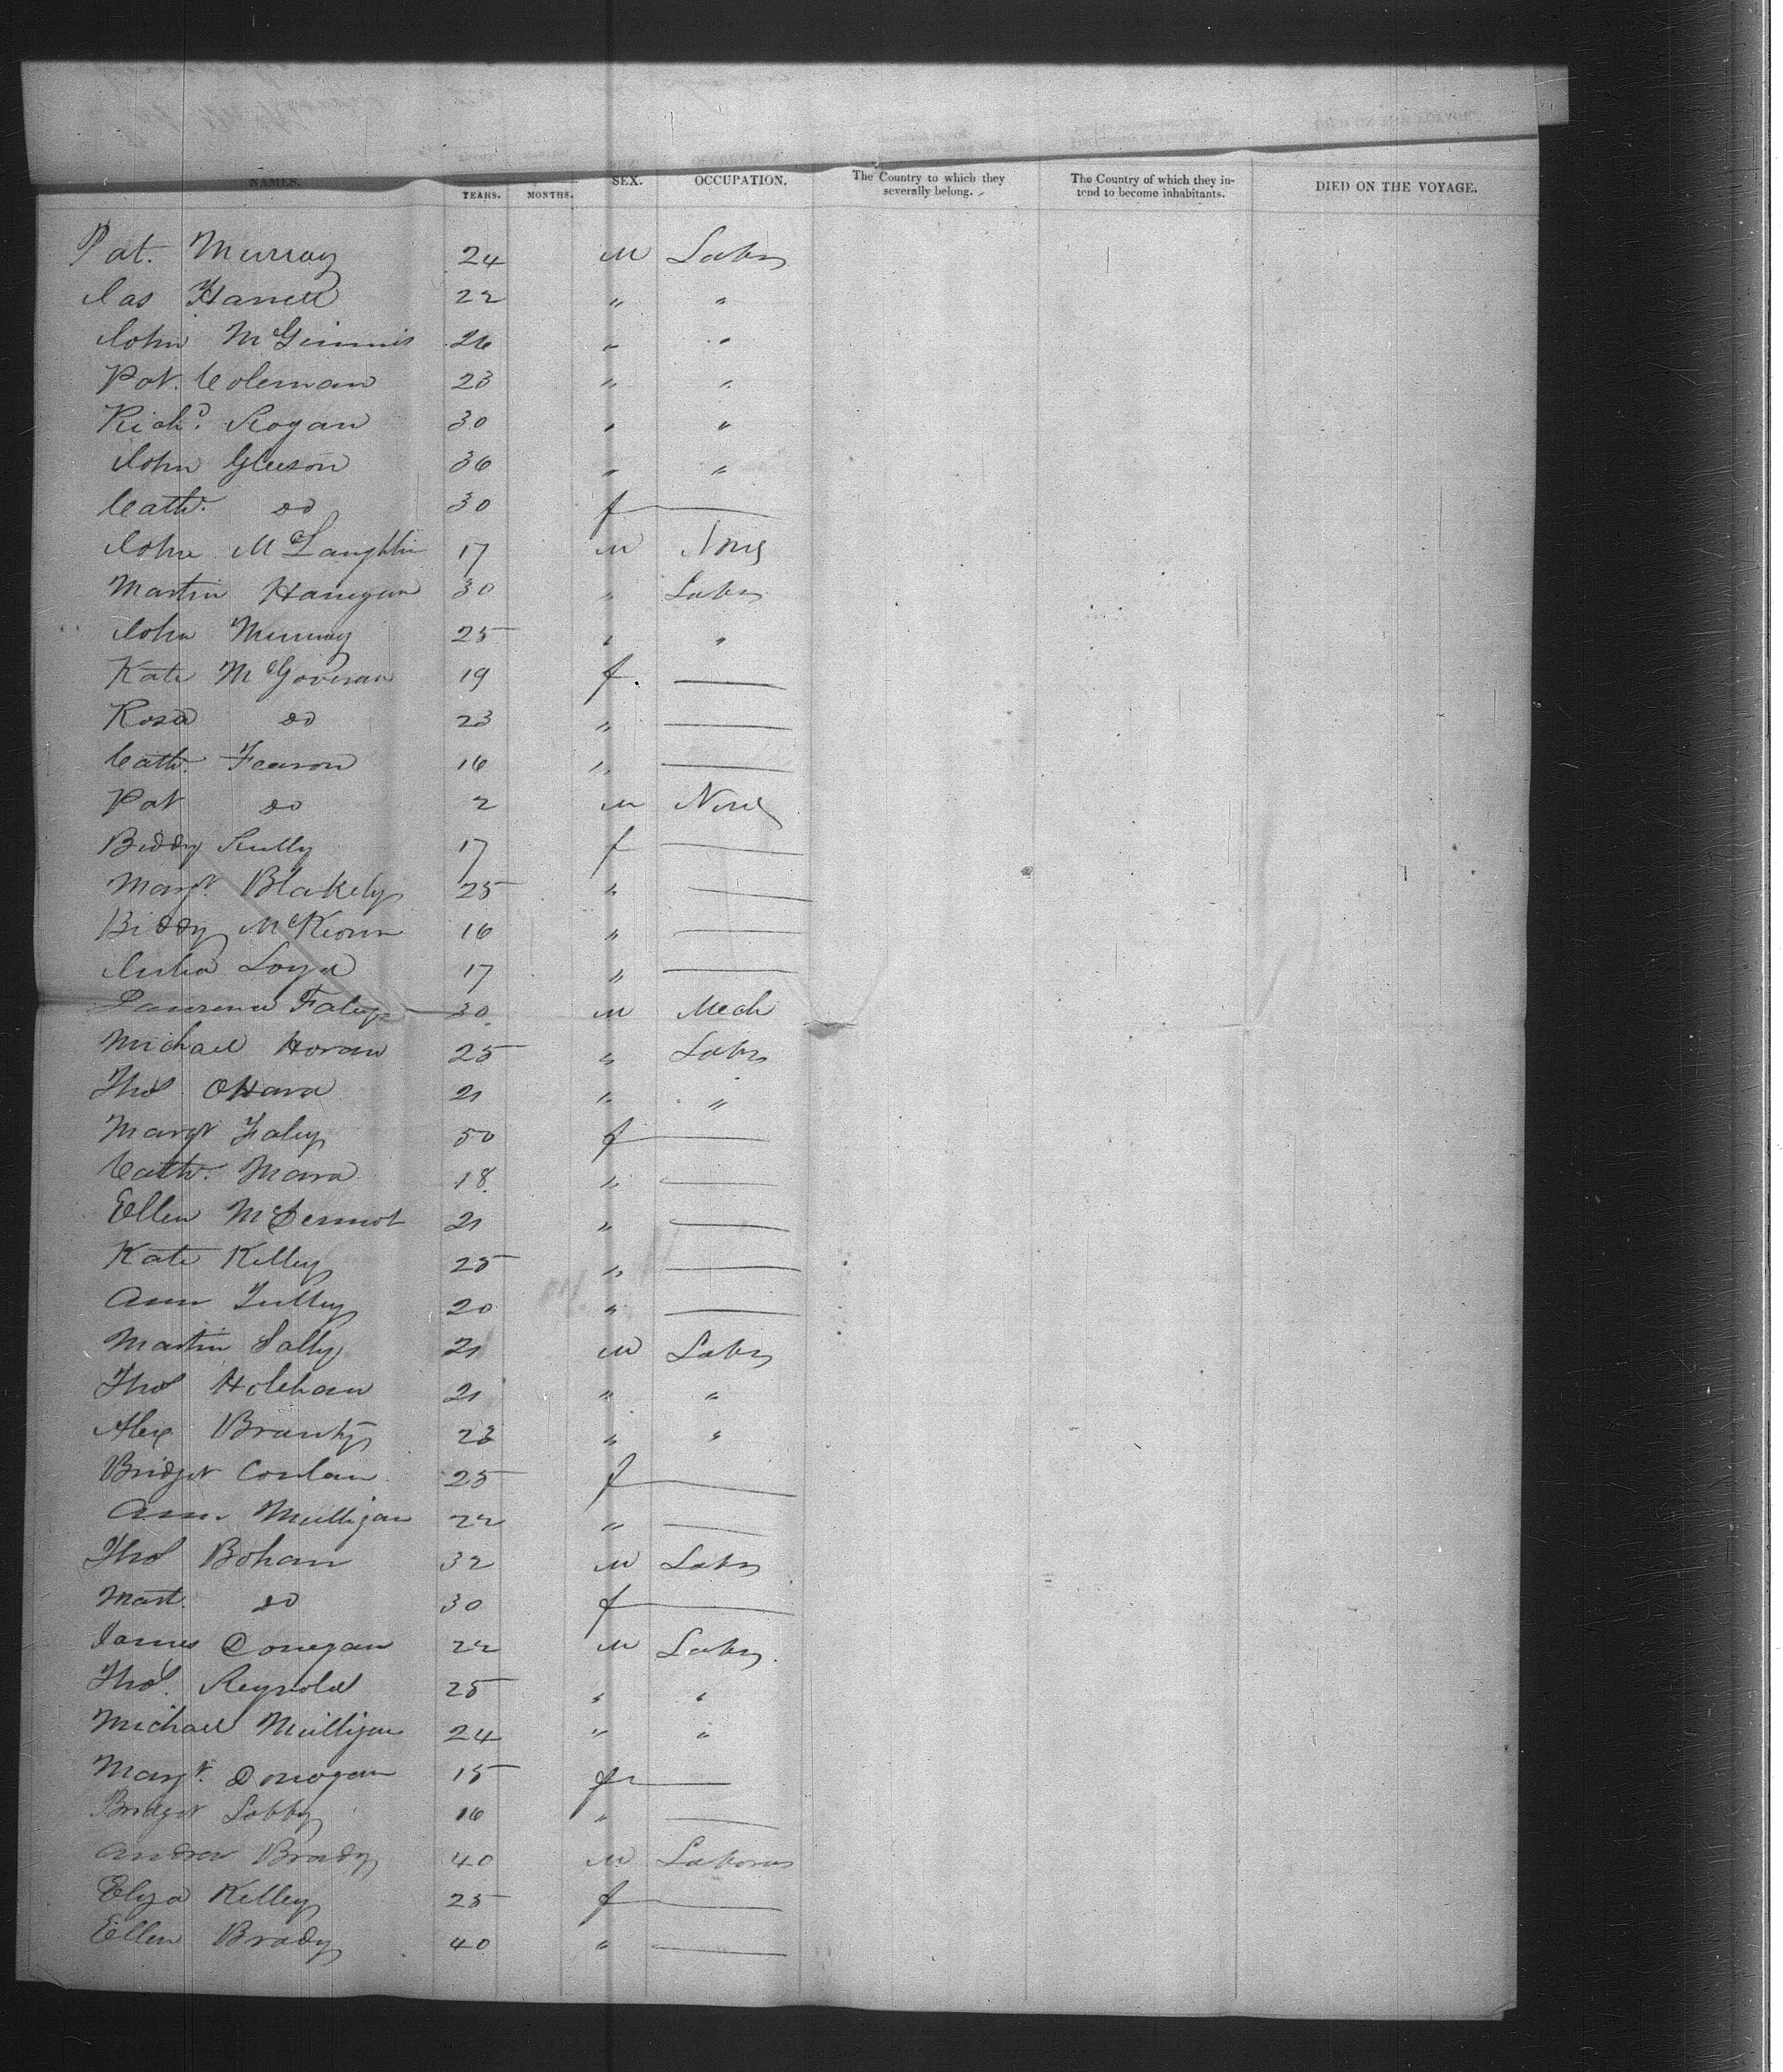 NAMES. YEARS. MONTHS. SEX. OCCUPATION. The Country to which they severally belong. The Country of which they intend to become inhabitants. DIED ON THE VOYAGE.
Pat. Murray 24 M Labr
Jas Farrell 22 " "
John McGinnis 26 " "
Pat. Coleman 23 " "
Richd. Rogan 30 " "
John Gleeson 36 " "
Cath. do 30 f —
John McLaughlin 17 M None
Martin Hanegan 30 " Labr
John Murray 25 " "
Kate McGoveran 19 f. —
Rosa do 23 " —
Cath. Fearon 16 " —
Pat do 2 M None
Biddy Scully 17 f —
Margt. Blakely 25 " —
Biddy McKeown 16 " —
Julia Loyd 17 " —
Lawrence Faley 30 M Mech
Michael Horan 25 " Labr
Thos OHara 21 " "
Margt Faley 50 f —
Cath. Mara 18 " —
Ellen McDermot 21 " —
Kate Kelley 25 " —
Ann Tulley 20 " —
Martin Lally 21 M Labr
Thos Holehan 21 " "
Alex 23 " "
Bridget Conlan 25 f —
Ann Mulligan 22 " —
Thos Bohan 32 M Labr
do 30 f —
James Donegan 22 M Labr
Thos. Reynold 25 " "
Michael Mulligan 24 " "
Margt. Donogan 15 f —
Bridget 16 " —
Andrew Brady 40 M Laborer
Eliza Kelley 25 f —
Ellen Brady 40 " —